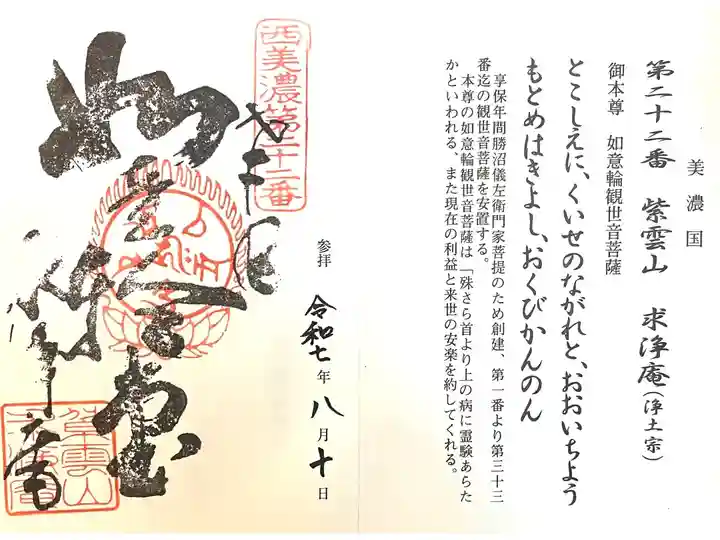 美濃国
第二十二番 紫雲山 求浄庵(浄土宗)
御本尊 如意輪観世音菩薩
とこしえに、くいせのながれと、おおいちよう
もとめはきよし、おくびかんのん
享保年間勝沼儀左衛門家菩提のため創建、第一番より第三十三
番迄の観世音菩薩を安置する。
本尊の如意輪観世音菩薩は「殊さら首より上の病に霊験あらた
かといわれる、また現在の利益と来世の安楽を約してくれる。
参拝 令和七年八月十日
西美濃第二十二番
紫雲山
求浄庵